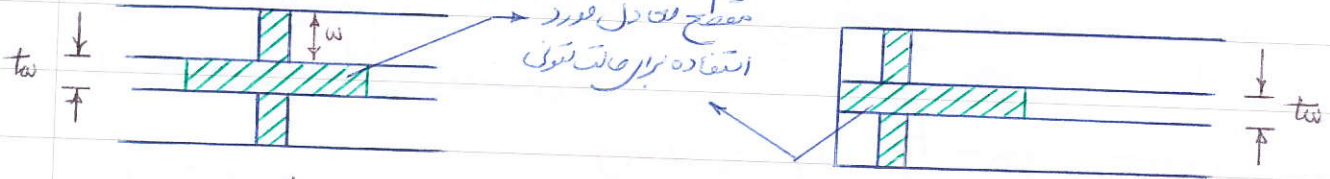 مقطع معادل مورد
استفاده برای حالت ستونی
w
tw
tw